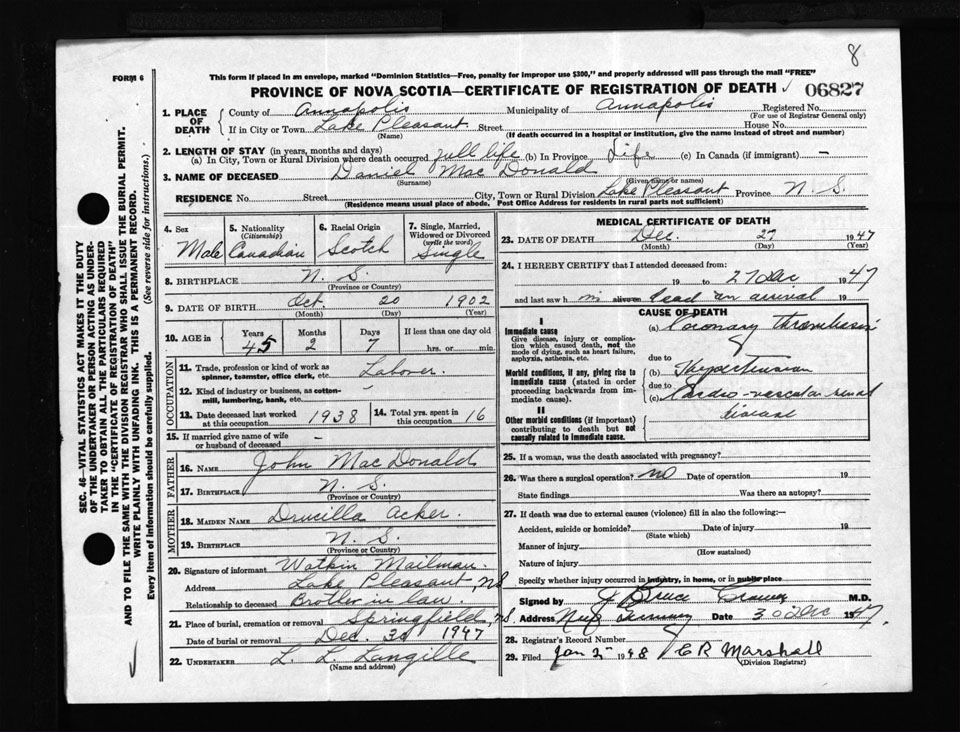 8
FORM 6
This form if placed in an envelope, marked "Dominion Statistics—Free, penalty for improper use $300," and properly addressed will pass through the mail "FREE"
PROVINCE OF NOVA SCOTIA—CERTIFICATE OF REGISTRATION OF DEATH 06827
1. PLACE OF DEATH County of Annapolis Municipality of Annapolis Registered No.
(For use of Registrar General only)
If in City or Town Lake Pleasant Street House No.
(Name) (If death occurred in a hospital or institution, give the name instead of street and number)
2. LENGTH OF STAY (in years, months and days)
(a) In City, Town or Rural Division where death occurred full life (b) In Province Life (c) In Canada (if immigrant) —
3. NAME OF DECEASED Daniel MacDonald
(Surname) (Given name or names)
RESIDENCE No. Street City, Town or Rural Division Lake Pleasant Province N. S.
(Residence means usual place of abode. Post Office Address for residents in rural parts not sufficient)
4. Sex Male
5. Nationality (Citizenship) Canadian
6. Racial Origin Scotch
7. Single, Married, Widowed or Divorced (write the word) Single
8. BIRTHPLACE N. S.
(Province or Country)
9. DATE OF BIRTH Oct 20 1902
(Month) (Day) (Year)
10. AGE in Years 45 Months 2 Days 7 If less than one day old hrs. or min.
OCCUPATION
11. Trade, profession or kind of work as spinner, teamster, office clerk, etc. Laborer.
12. Kind of industry or business, as cotton-mill, lumbering, bank, etc. -
13. Date deceased last worked at this occupation 1938
14. Total yrs. spent in this occupation 16
15. If married give name of wife or husband of deceased —
FATHER
16. NAME John MacDonald
17. BIRTHPLACE N. S.
(Province or Country)
MOTHER
18. MAIDEN NAME Drucilla Acker.
19. BIRTHPLACE N. S.
(Province or Country)
20. Signature of informant Watkin Mailman.
Address Lake Pleasant, NS
Relationship to deceased Brother in law.
21. Place of burial, cremation or removal Springfield, N.S.
Date of burial or removal Dec. 30 1947
22. UNDERTAKER L. L. Langille
(Name and address)
MEDICAL CERTIFICATE OF DEATH
23. DATE OF DEATH Dec. 27 1947
(Month) (Day) (Year)
24. I HEREBY CERTIFY that I attended deceased from:
19 to 27 Dec 1947
and last saw h im alive on dead on arrival 19
CAUSE OF DEATH
I
Immediate cause
Give disease, injury or complication which caused death, not the mode of dying, such as heart failure, asphyxia, asthenia, etc.
(a) Coronary thrombosis
due to
Morbid conditions, if any, giving rise to immediate cause (stated in order proceeding backwards from immediate cause).
(b) Hypertension
due to
(c) Cardio-vascular renal disease
II
Other morbid conditions (if important) contributing to death but not causally related to immediate cause.
25. If a woman, was the death associated with pregnancy?
26. Was there a surgical operation? no Date of operation 19
State findings Was there an autopsy?
27. If death was due to external causes (violence) fill in also the following:—
Accident, suicide or homicide? Date of injury 19
(State which)
Manner of injury
(How sustained)
Nature of injury
Specify whether injury occurred in industry, in home, or in public place
Signed by J Bruce M.D.
Address Date 30 Dec 1947
28. Registrar's Record Number
29. Filed Jan 2 1948 C R Marshall
(Division Registrar)
SEC. 46—VITAL STATISTICS ACT MAKES IT THE DUTY
OF THE UNDERTAKER OR PERSON ACTING AS UNDER-
TAKER TO OBTAIN ALL THE PARTICULARS REQUIRED
IN THE "CERTIFICATE OF REGISTRATION OF DEATH"
AND TO FILE THE SAME WITH THE DIVISION REGISTRAR WHO SHALL ISSUE THE BURIAL PERMIT.
WRITE PLAINLY WITH UNFADING INK. THIS IS A PERMANENT RECORD.
Every item of information should be carefully supplied. (See reverse side for instructions.)